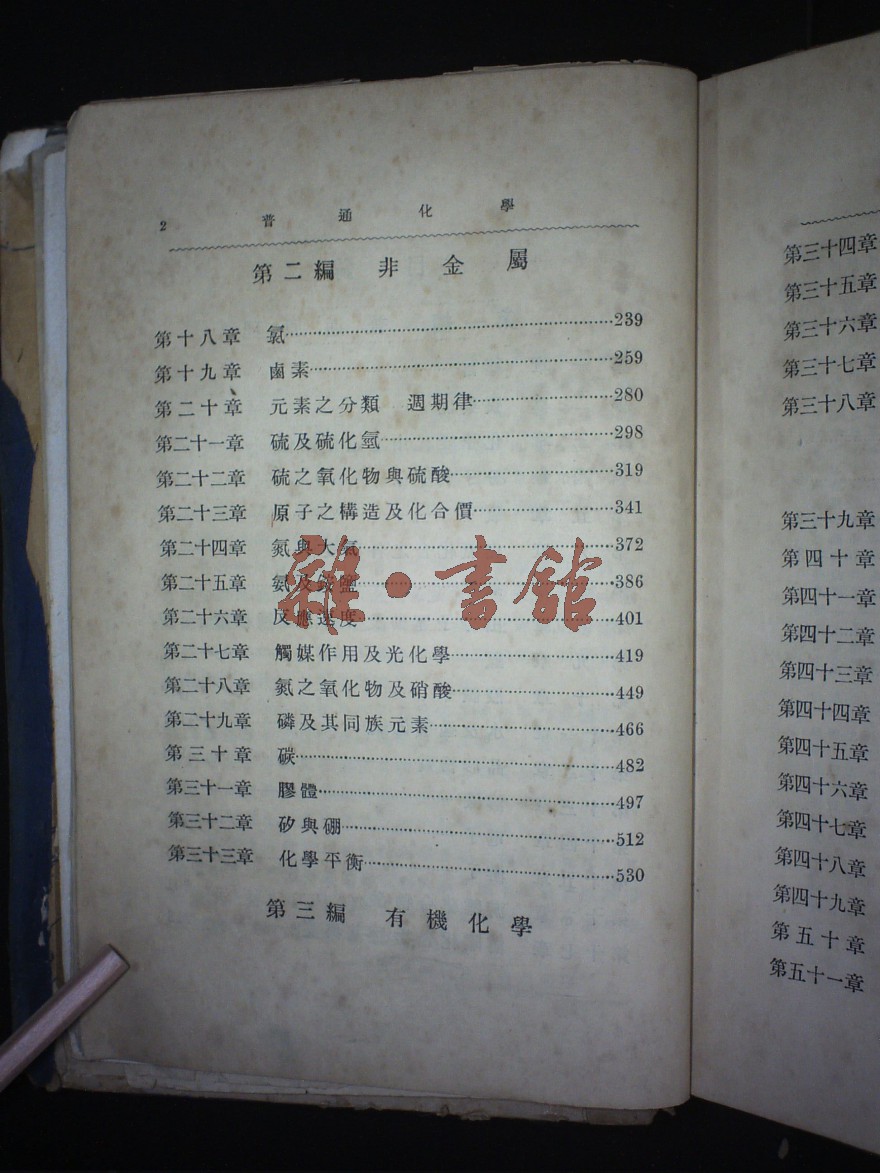 2 普通化學
第二編 非金屬
第十八章 氯……239
第十九章 鹵素……259
第二十章 元素之分類 週期律……280
第二十一章 硫及硫化氫……298
第二十二章 硫之氧化物與硫酸……319
第二十三章 原子之構造及化合價……341
第二十四章 氮與大氣……372
第二十五章 氨及銨鹽……386
第二十六章 反應速度……401
第二十七章 觸媒作用及光化學……419
第二十八章 氮之氧化物及硝酸……449
第二十九章 磷及其同族元素……466
第三十章 碳……482
第三十一章 膠體……497
第三十二章 矽與硼……512
第三十三章 化學平衡……530
第三編 有機化學
雜·書館
第三十四章
第三十五章
第三十六章
第三十七章
第三十八章
第三十九章
第四十章
第四十一章
第四十二章
第四十三章
第四十四章
第四十五章
第四十六章
第四十七章
第四十八章
第四十九章
第五十章
第五十一章